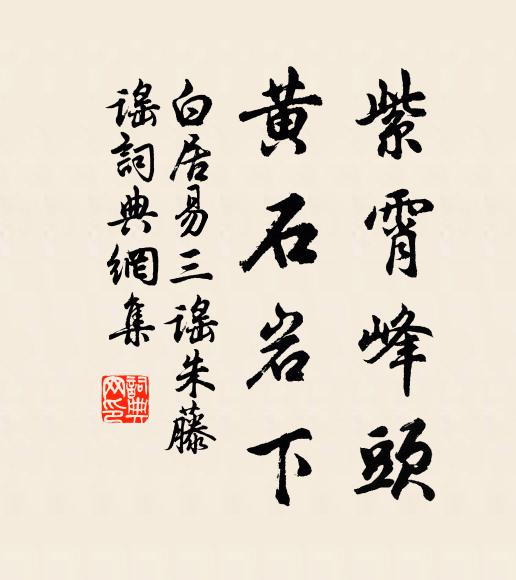 紫霄峰頭
黃石岩下
白居易三謠朱藤
謠詞典網集
詞典网印